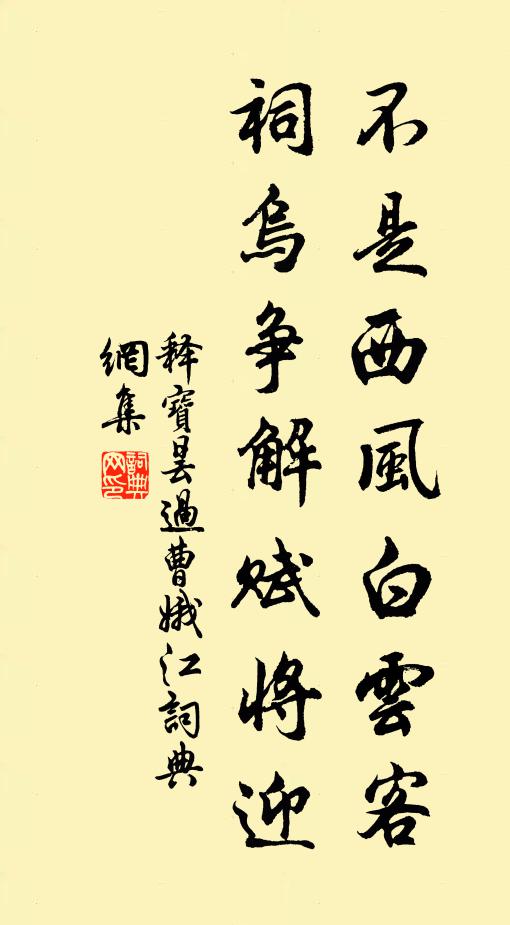 不是西風白雲客
祠烏争解賦將迎
释寶曇過曹娥江詞典
網集
詞典網印